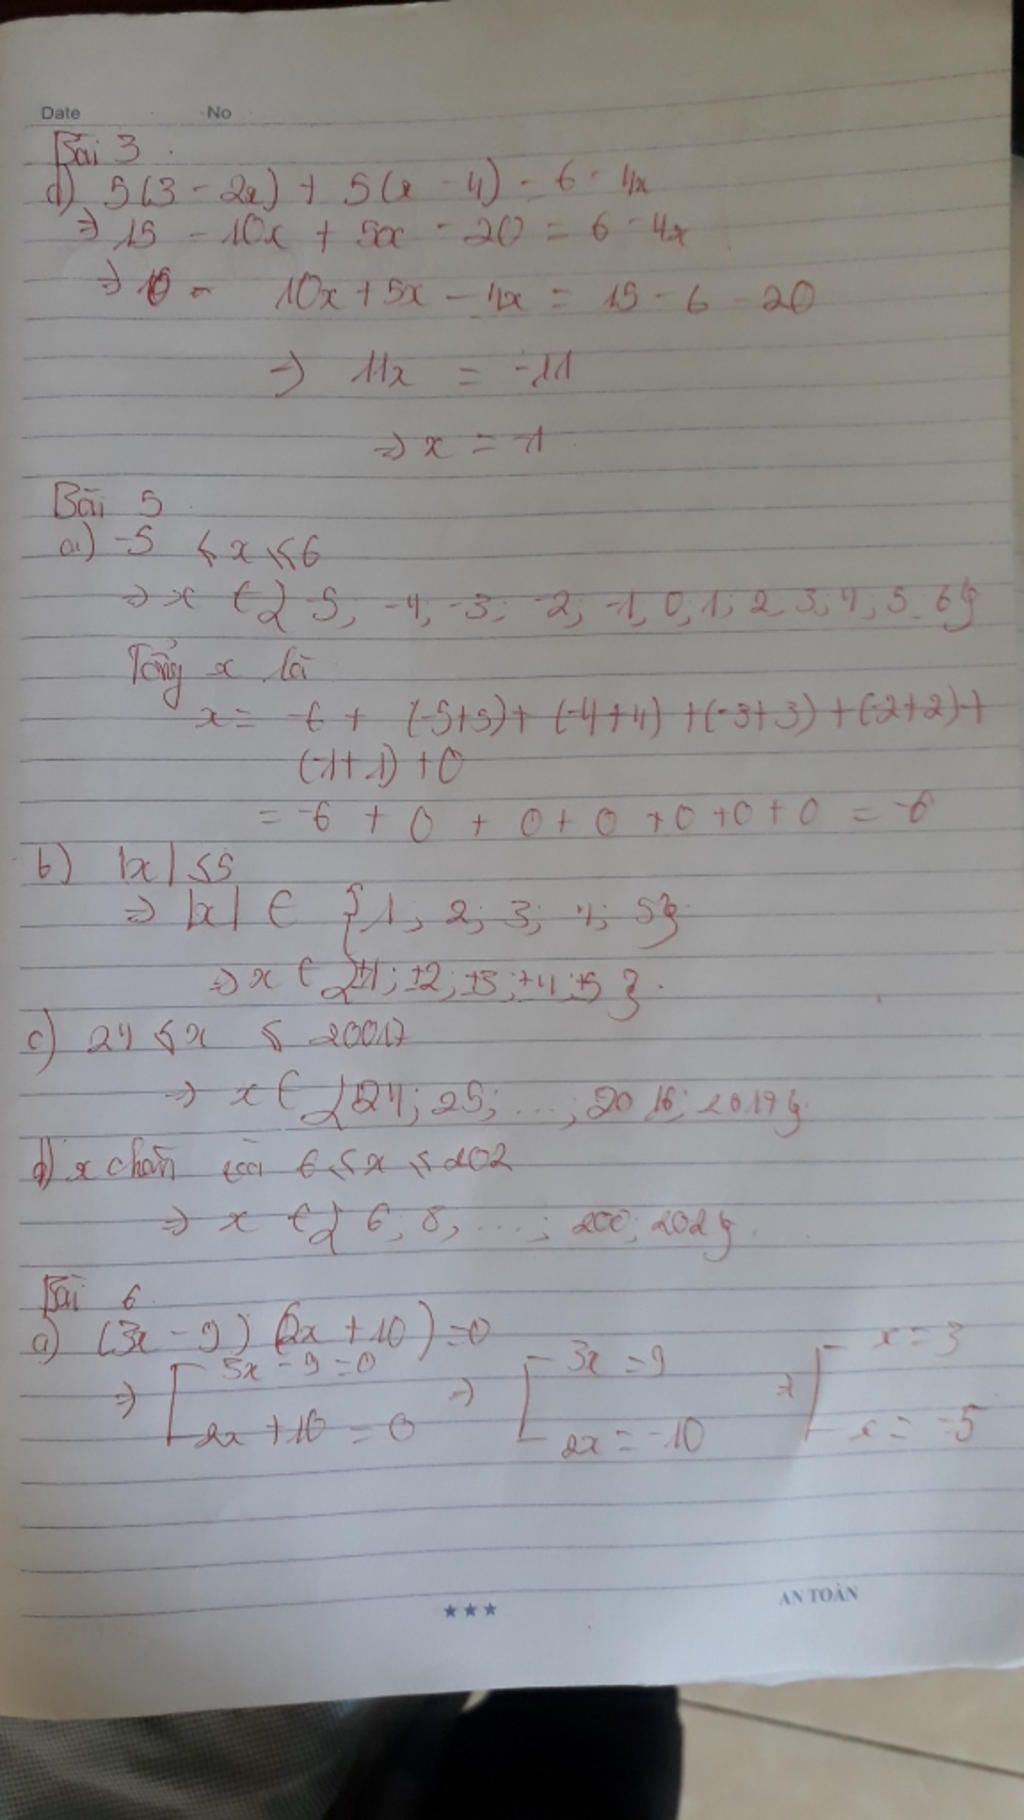 Date No
Bài 3
d) 5(3 - 2x) + 5(x - 4) = 6 - 4x
=> 15 - 10x + 5x - 20 = 6 - 4x
=> 10x + 5x - 4x = 15 - 6 - 20
=> 11x = -11
=> x = -1
Bài 5
a) -5 ≤ x ≤ 6
=> x ∈ { -5; -4; -3; -2; -1; 0; 1; 2; 3; 4; 5; 6}
Tổng x là
x = -6 + (-5+5) + (-4+4) + (-3+3) + (-2+2) +
(-1+1) + 0
= -6 + 0 + 0 + 0 + 0 + 0 + 0 = -6
b) |x| ≤ 5
=> |x| ∈ {1; 2; 3; 4; 5}
=> x ∈ {±1; ±2; ±3; ±4; ±5}.
c) 24 ≤ x ≤ 20017
=> x ∈ {24; 25; ...; 2016; 2017}
d) x chẵn và 6 ≤ x ≤ 202
=> x ∈ { 6; 8; ...; 200; 202}.
Bài 6
a) (3x - 9) (2x + 10) = 0
=> [ 3x - 9 = 0 => [ 3x = 9 => [ x = 3
2x + 10 = 0 2x = -10 x = -5
*** AN TOÀN